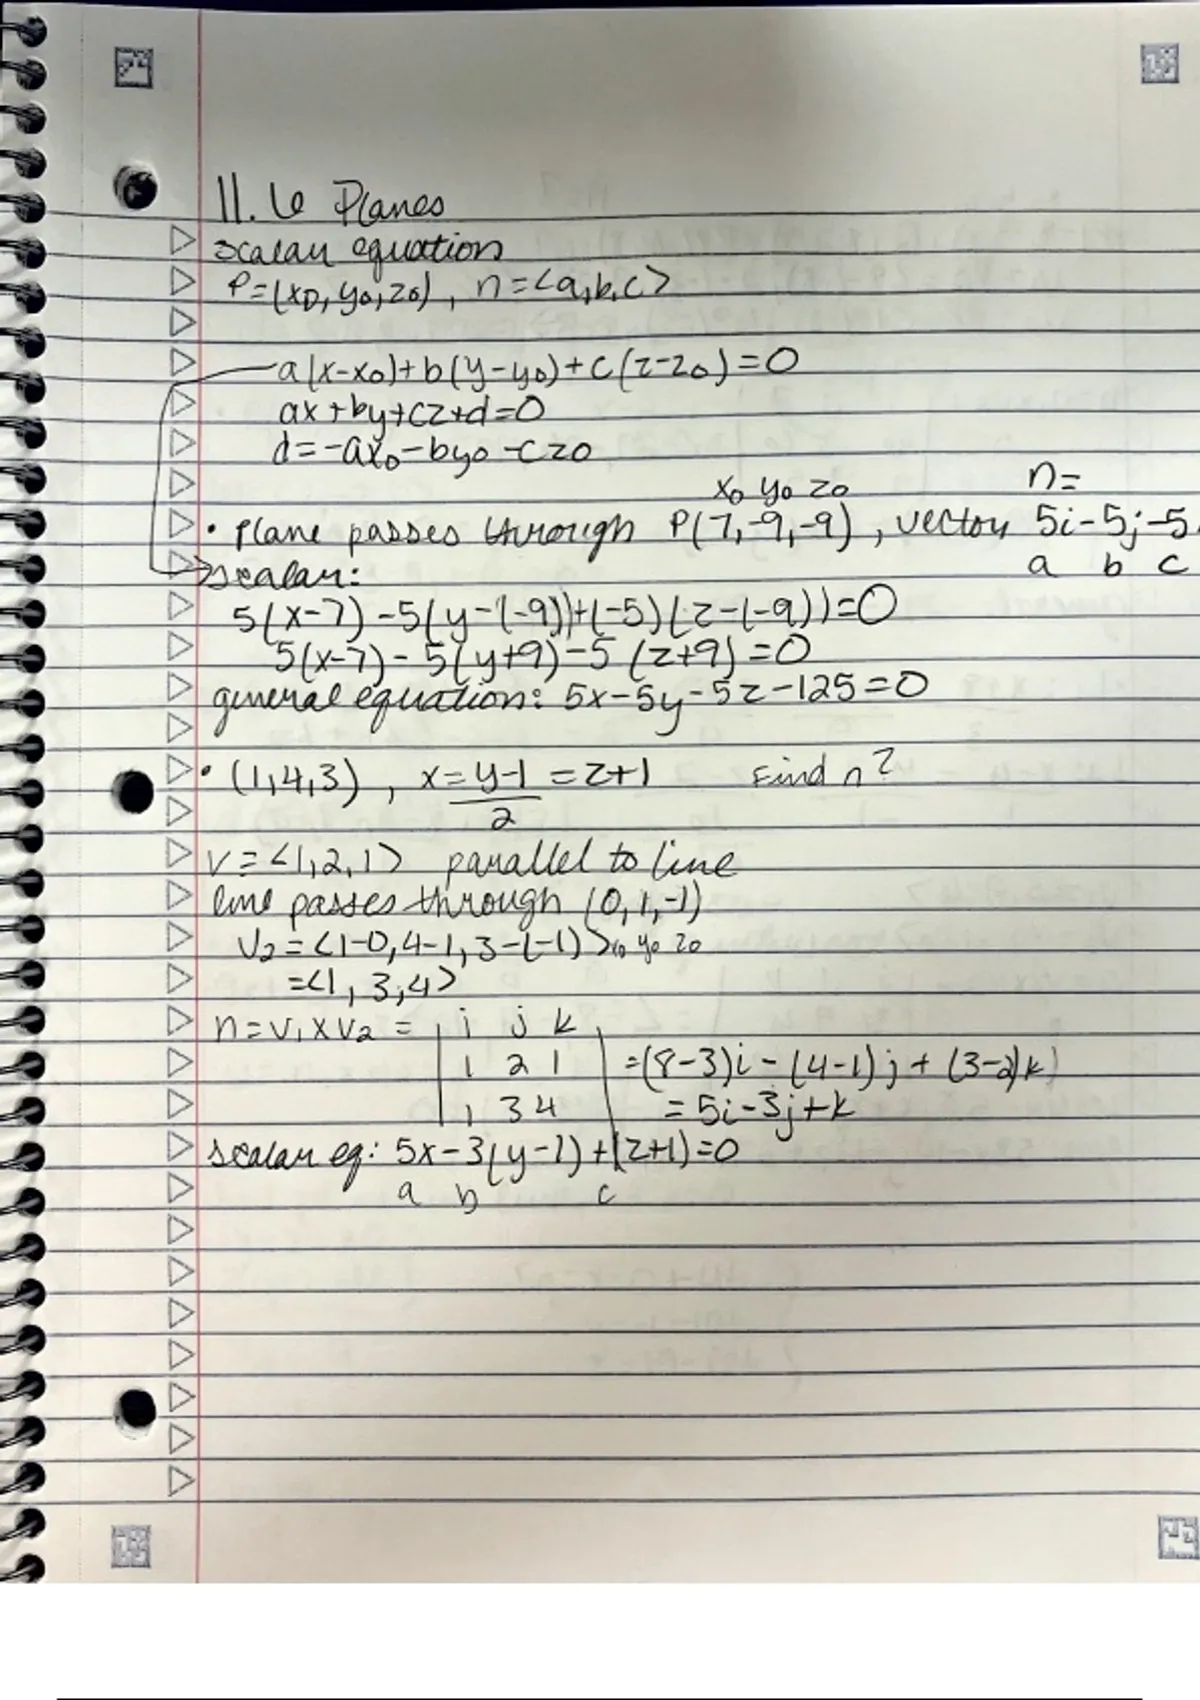 11.6 Planes
scalar equation
P=(x0, y0, z0), n=<a,b,c>
a(x-x0)+b(y-y0)+c(z-z0)=0
ax+by+cz+d=0
d=-ax0-by0-cz0
x0 y0 z0 n=
• Plane passes through P(7,-9,-9), vector 5i-5j-5
a b c
scalar:
5(x-7)-5(y-(-9))+(-5)(z-(-9))=0
5(x-7)-5(y+9)-5(z+9)=0
general equation: 5x-5y-5z-125=0
• (1,4,3), x=y-1=z+1 Find n?
2
v=<1,2,1> parallel to line
line passes through (0,1,-1)
V2=<1-0,4-1,3-(-1)> x0 y0 z0
=<1,3,4>
n=V1xV2= | i j k
1 2 1 | =(8-3)i-(4-1)j+(3-2)k)
1 3 4 =5i-3j+k
scalar eq: 5x-3(y-1)+(z+1)=0
a b c